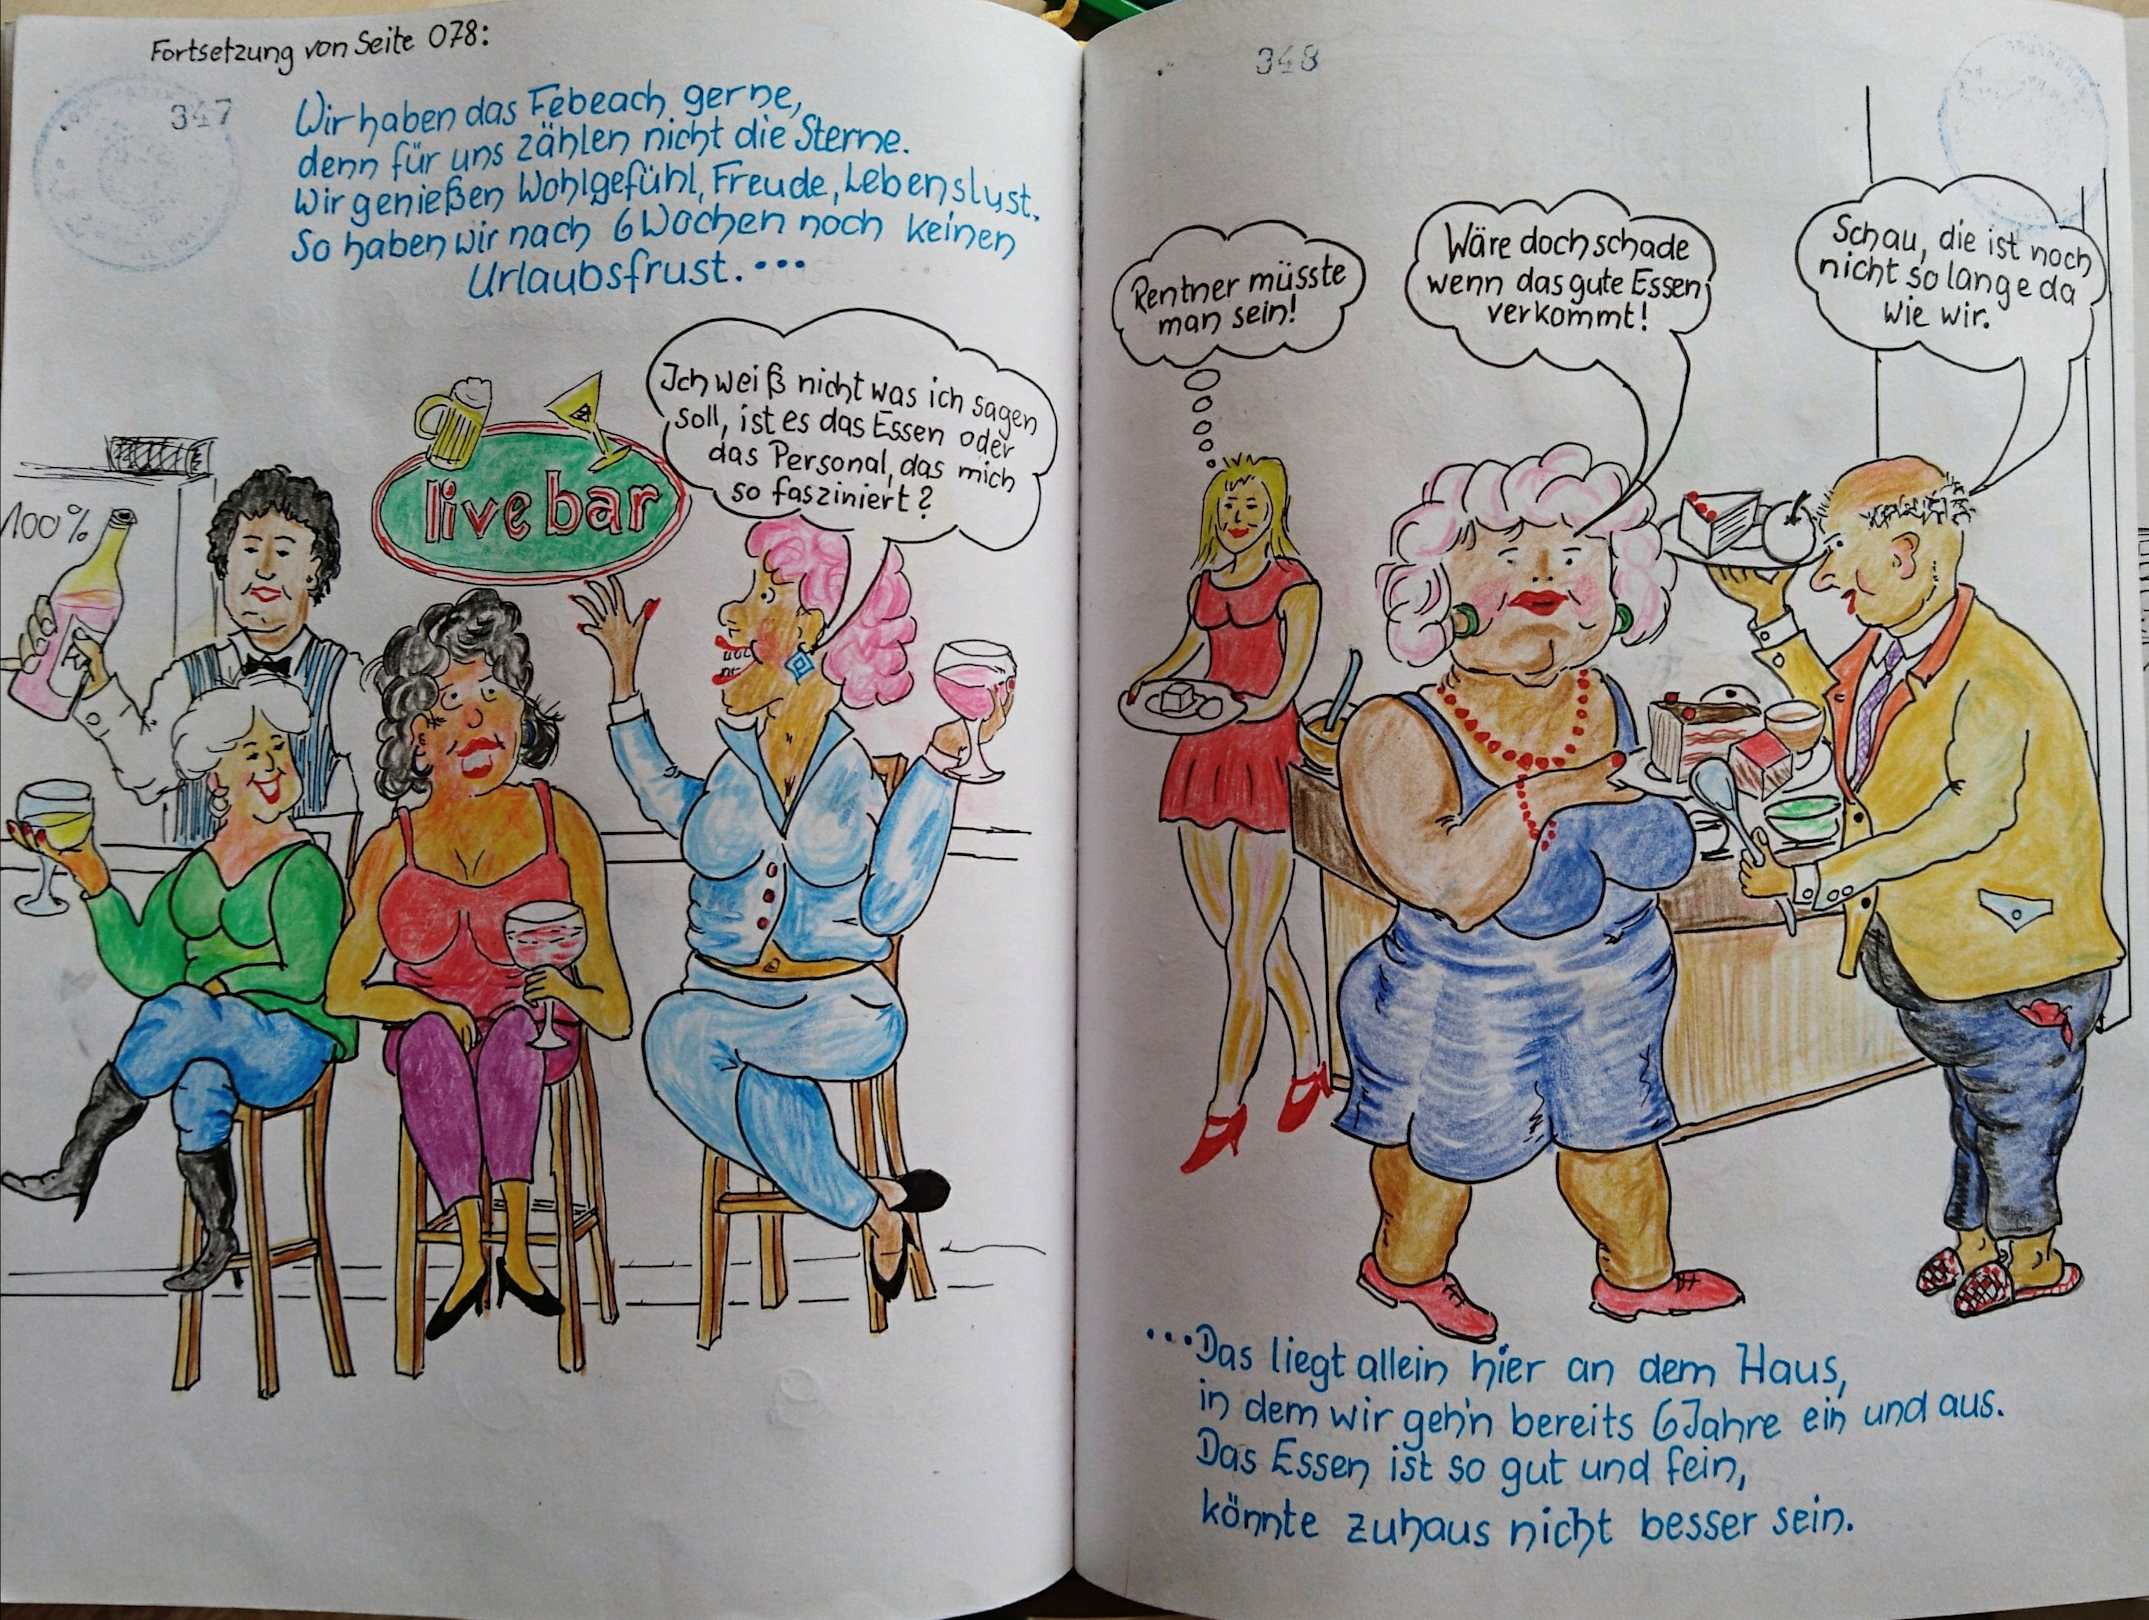 Fortsetzung von Seite 078:
347
Wir haben das Febeach gerne,
denn für uns zählen nicht die Sterne.
Wir genießen Wohlgefühl, Freude, Lebenslust.
So haben wir nach 6 Wochen noch keinen
Urlaubsfrust. ...
Ich weiß nicht was ich sagen
soll, ist es das Essen oder
das Personal, das mich
so fasziniert?
live bar
100%
348
Rentner müsste
man sein!
Wäre doch schade
wenn das gute Essen
verkommt!
Schau, die ist noch
nicht so lange da
wie wir.
...Das liegt allein hier an dem Haus,
in dem wir geh'n bereits 6 Jahre ein und aus.
Das Essen ist so gut und fein,
könnte zuhaus nicht besser sein.